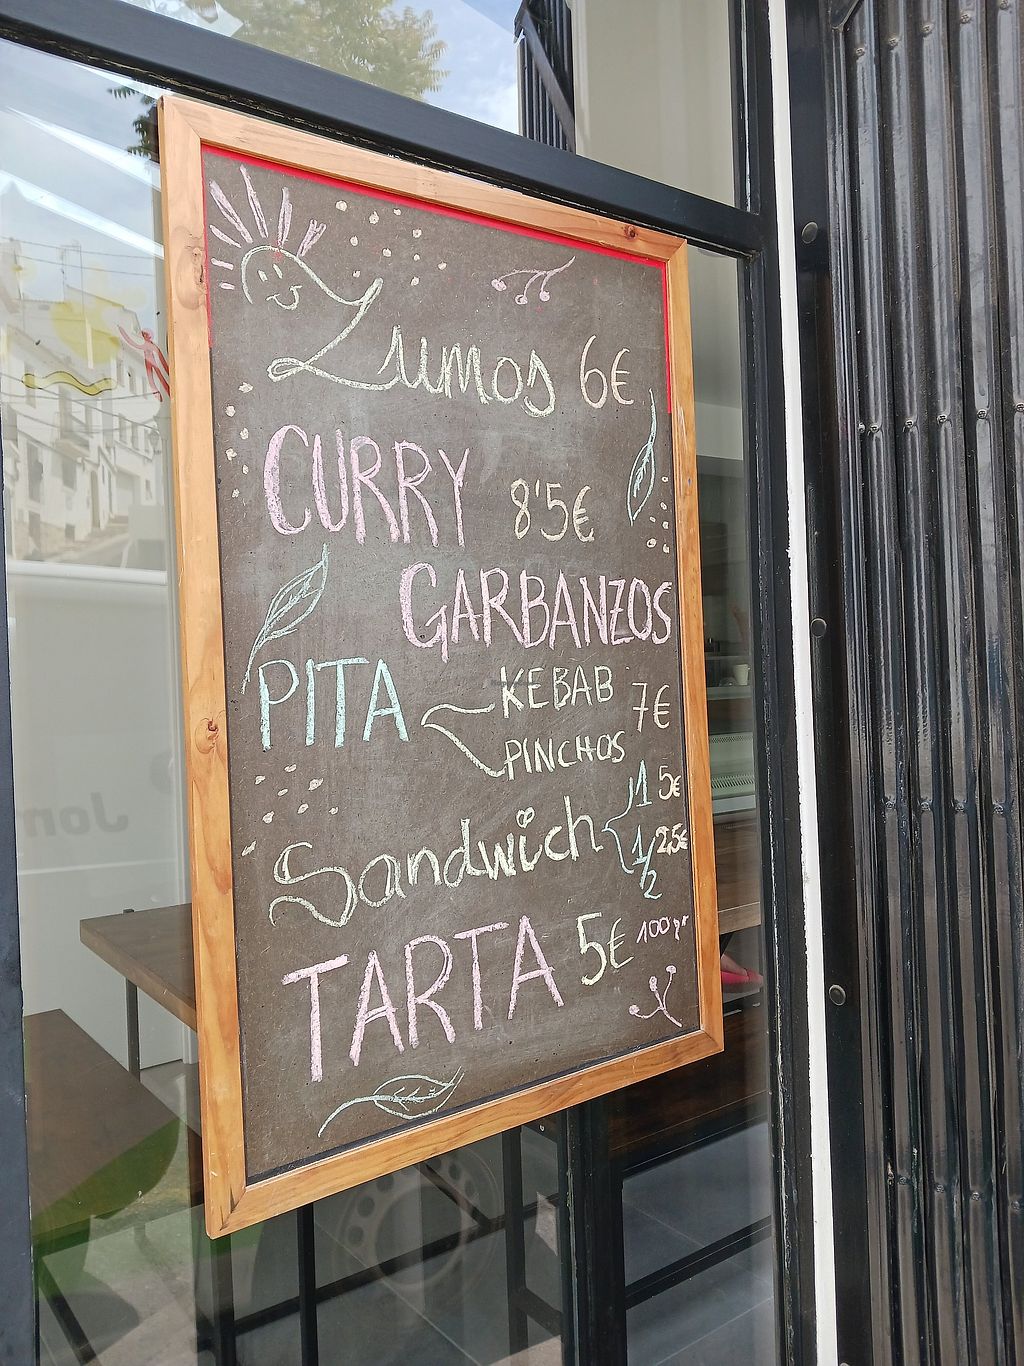 Zumos 6€
CURRY 8'5€
GARBANZOS
PITA KEBAB 7€
PINCHOS
Sandwich 1 5€
1/2 2,5€
TARTA 5€ 100gr
Jon